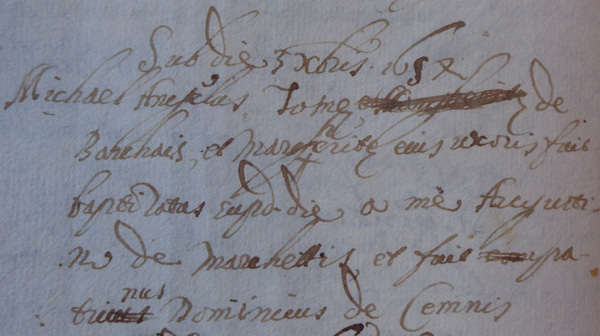 Sub die 3 Xbris. 165
Michael Angelus, Tome de
Barchais, et Margherite eius uxoris fuit
baptizatus supd. die a me Augusti-
no de Marchettis et fuit pa-
nus Dominicus de Cemnis